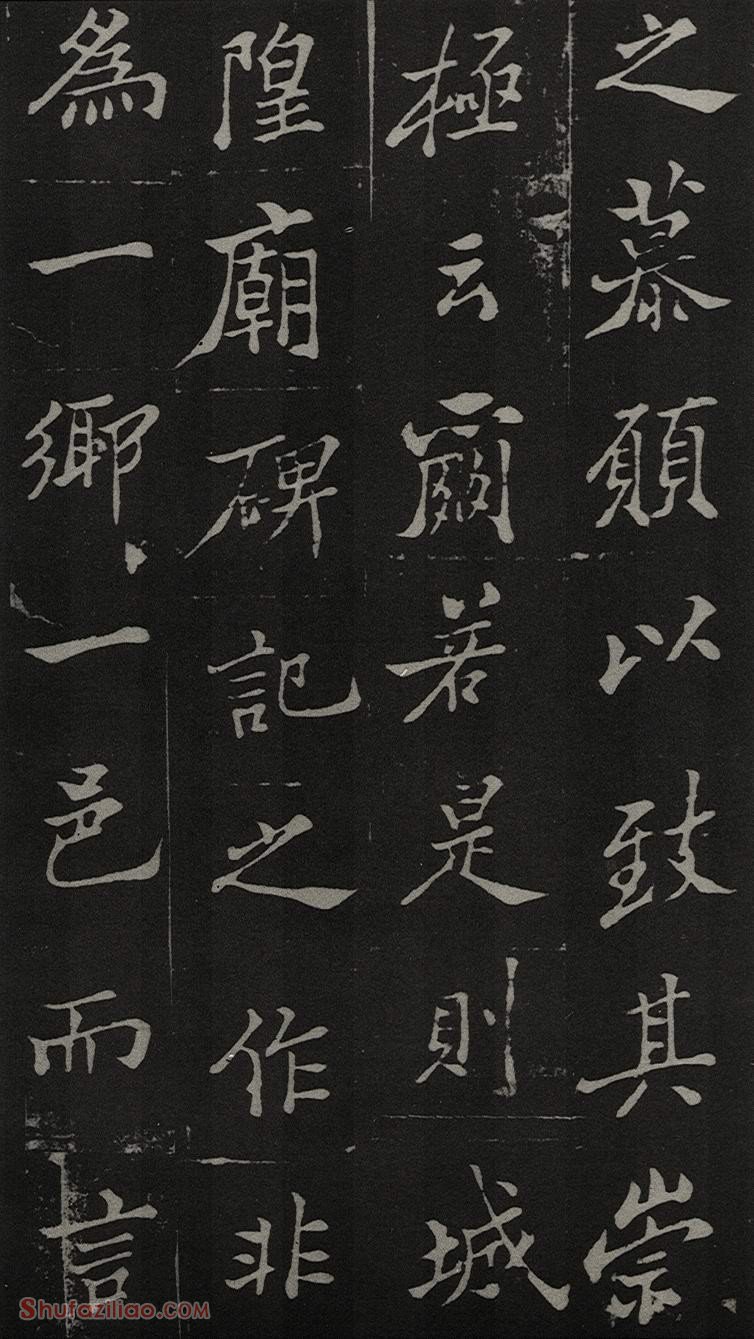 之慕願以致其崇
極云爾若是則城
隍廟碑記之作非
為一鄉一邑而言
Shufaziliao.com